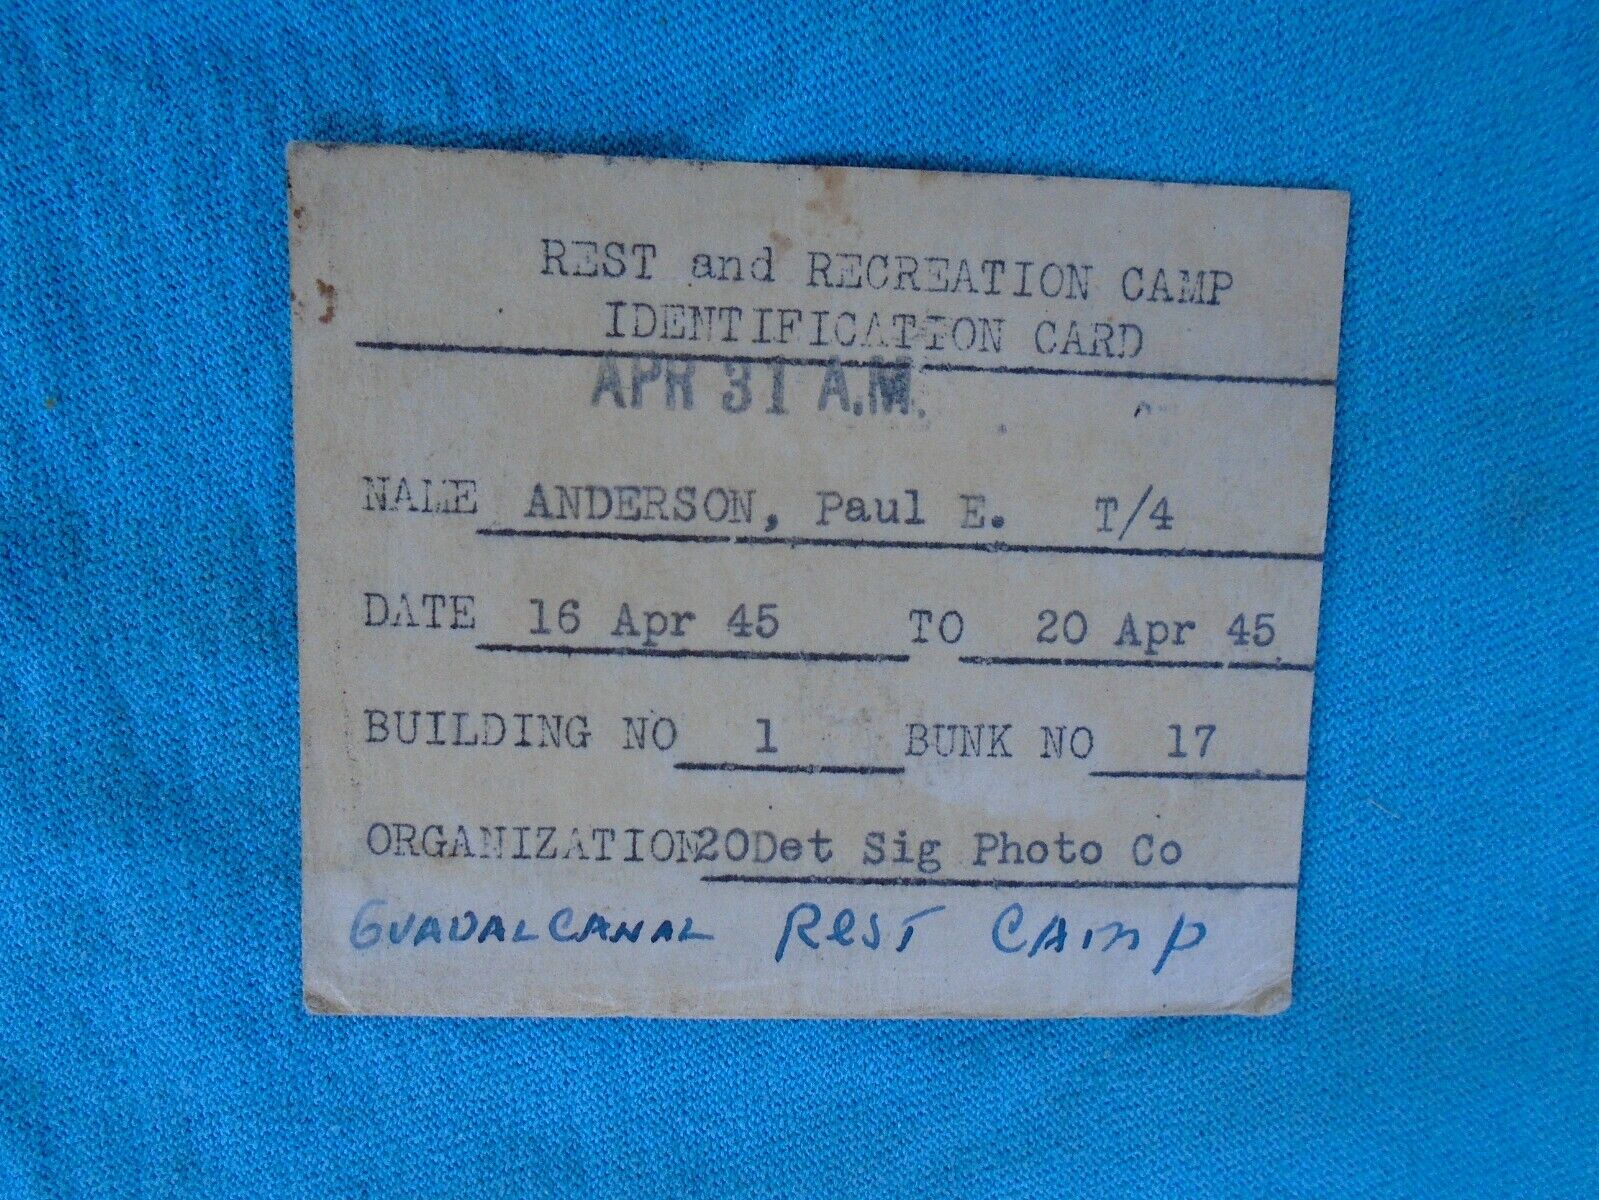 REST and RECREATION CAMP
IDENTIFICATION CARD
APR 31 A.M.
NAME ANDERSON, Paul E. T/4
DATE 16 Apr 45 TO 20 Apr 45
BUILDING NO 1 BUNK NO 17
ORGANIZATION 20Det Sig Photo Co
GUADALCANAL ReST CAmp